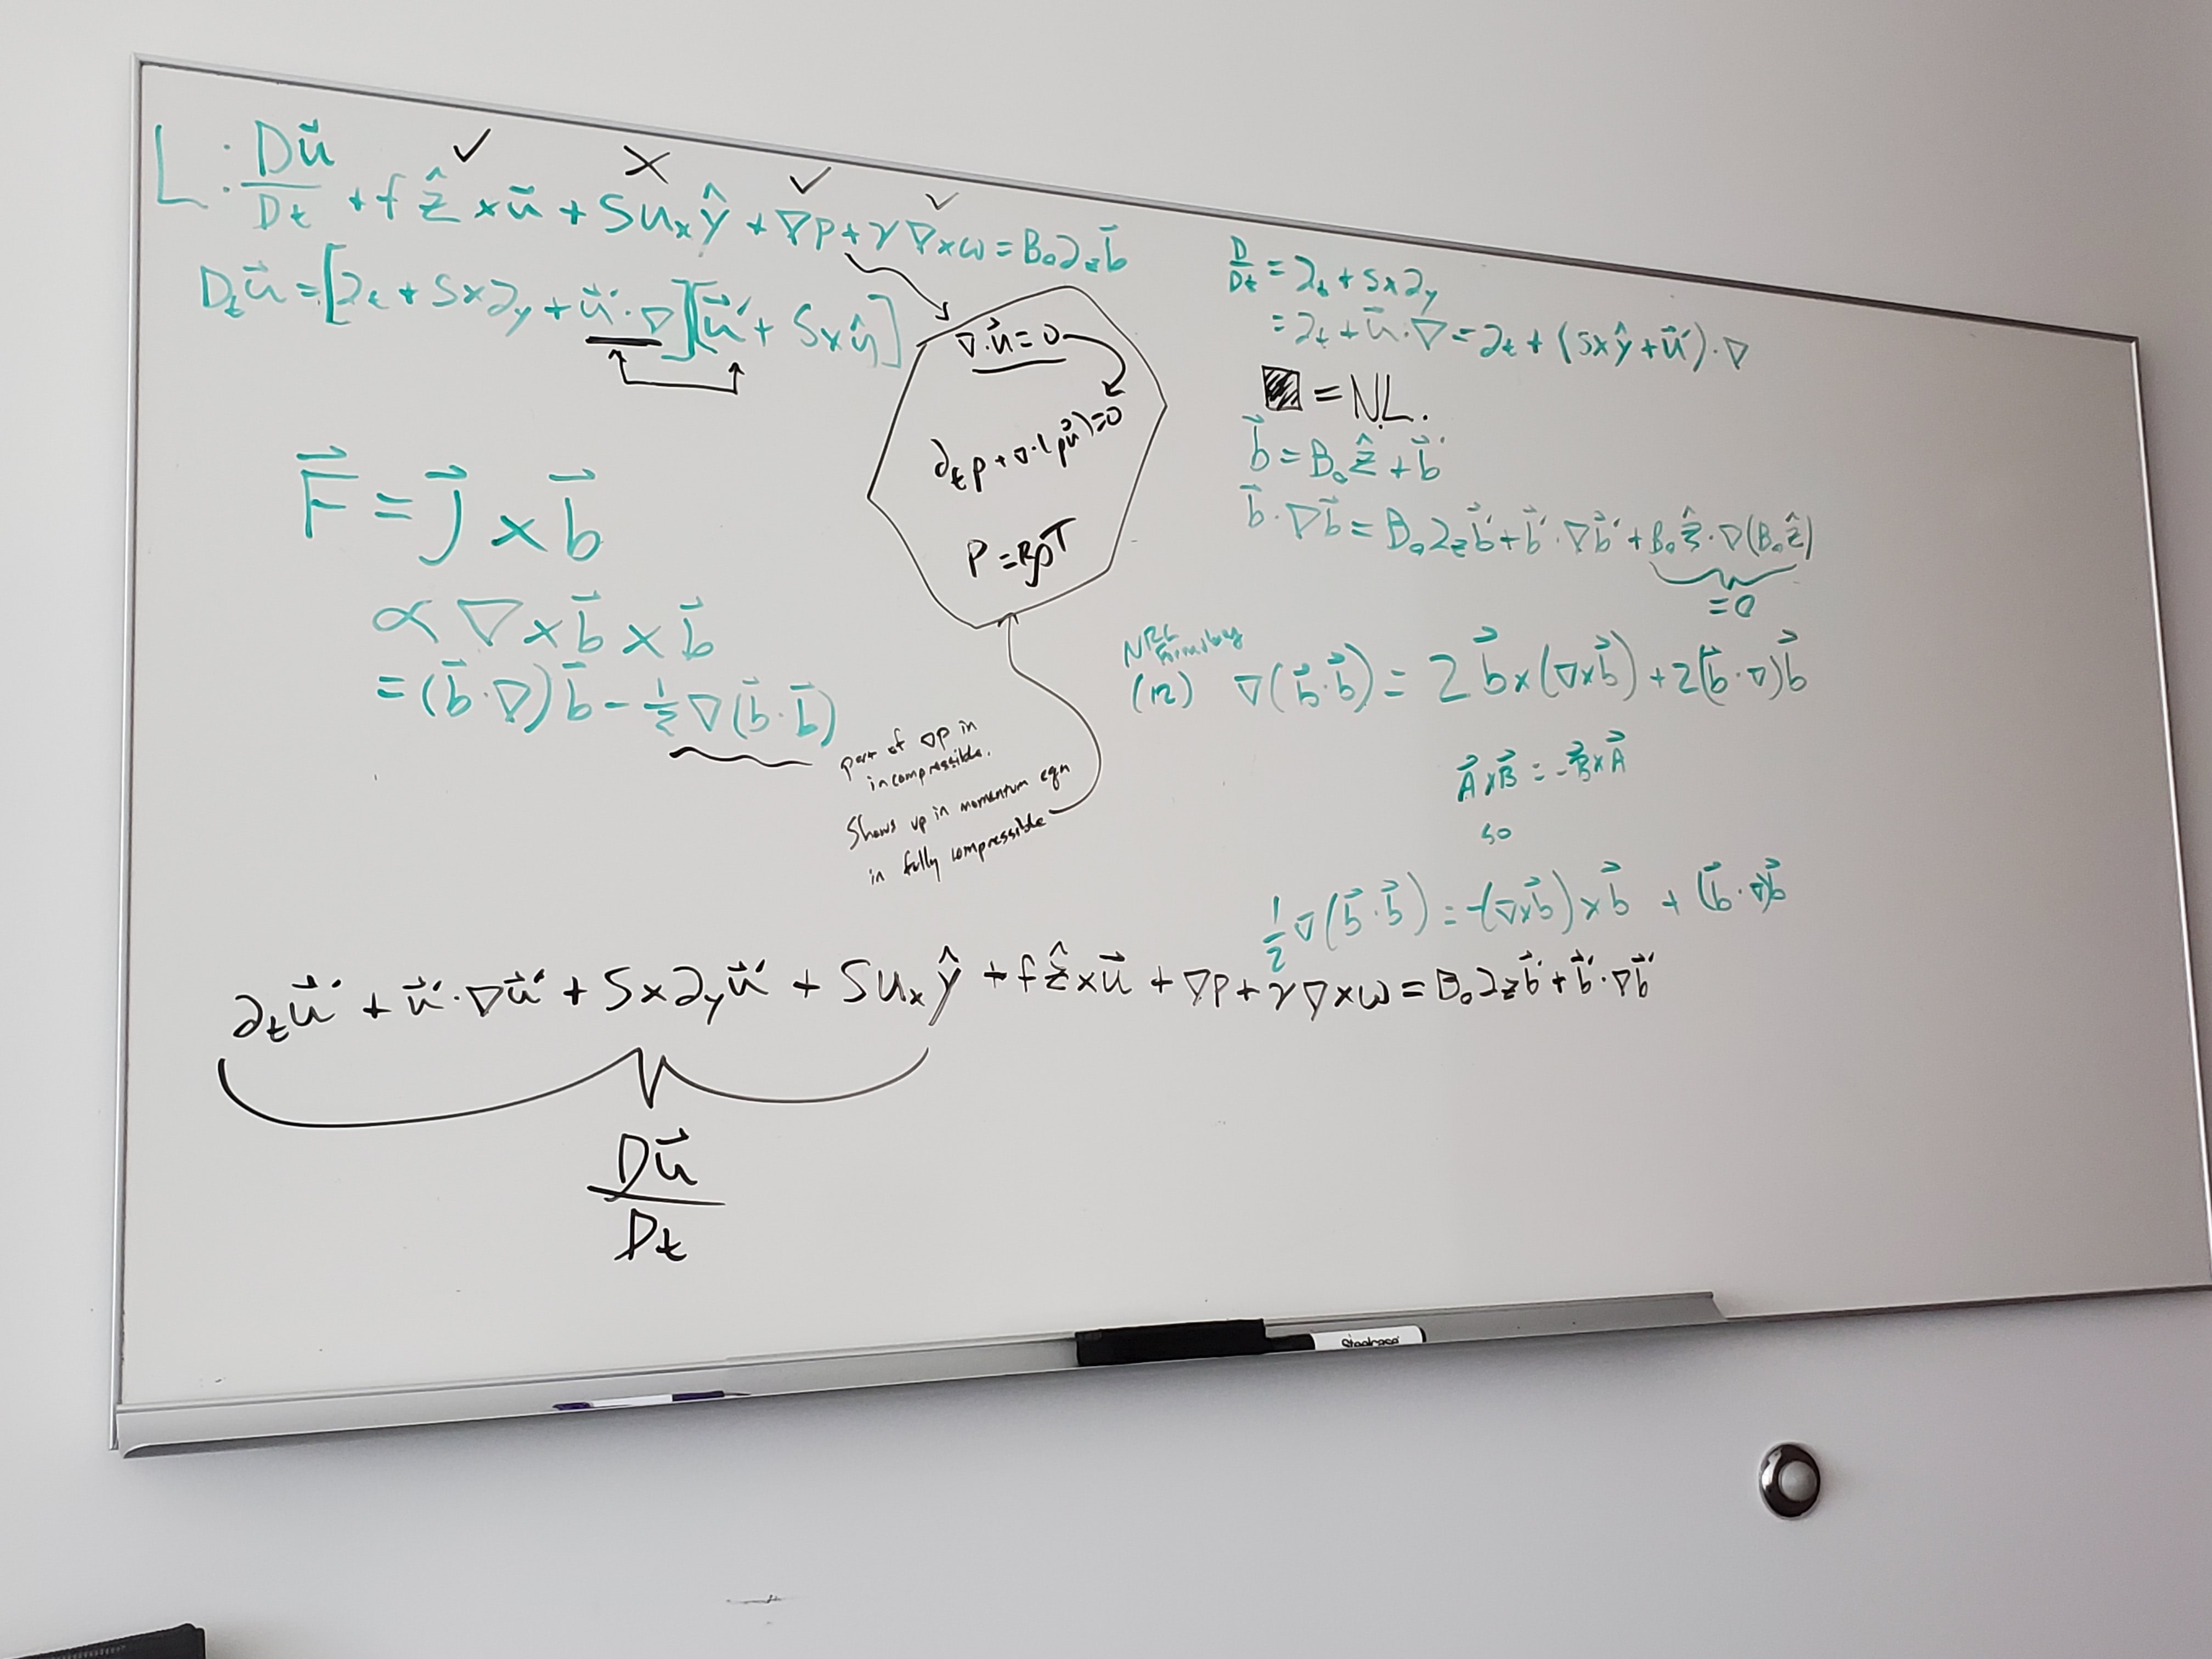 L: Du⃗/Dt + f ẑ × u⃗ + S uₓ ŷ + ∇p + ν ∇×ω = B₀ ∂_z b⃗
✓ X ✓ ✓
D_t u⃗ = [∂_t + Sx∂_y + u⃗'·∇][u⃗' + Sxŷ]
F⃗ = J⃗ × b⃗
∝ ∇ × b⃗ × b⃗
= (b⃗·∇)b⃗ − ½∇(b⃗·b⃗)
∇·u⃗ = 0
∂_t ρ + ∇·(ρu⃗) = 0
P = RρT
part of ∇p in
incompressible.
Shows up in momentum eqn
in fully compressible
D/Dt = ∂_t + Sx∂_y
= ∂_t + u⃗·∇ = ∂_t + (Sxŷ + u⃗')·∇
■ = NL.
b⃗ = B₀ẑ + b⃗'
b⃗·∇b⃗ = B₀∂_z b⃗' + b⃗'·∇b⃗' + B₀ẑ·∇(B₀ẑ)
= 0
NRL
Formulary
(12) ∇(b⃗·b⃗) = 2b⃗×(∇×b⃗) + 2(b⃗·∇)b⃗
A⃗×B⃗ = −B⃗×A⃗
so
½∇(b⃗·b⃗) = −(∇×b⃗)×b⃗ + (b⃗·∇)b⃗
∂_t u⃗' + u⃗'·∇u⃗' + Sx∂_y u⃗' + Suₓŷ + fẑ×u⃗ + ∇p + ν∇×ω = B₀∂_z b⃗' + b⃗'·∇b⃗'
Du⃗/Dt
Steelcase